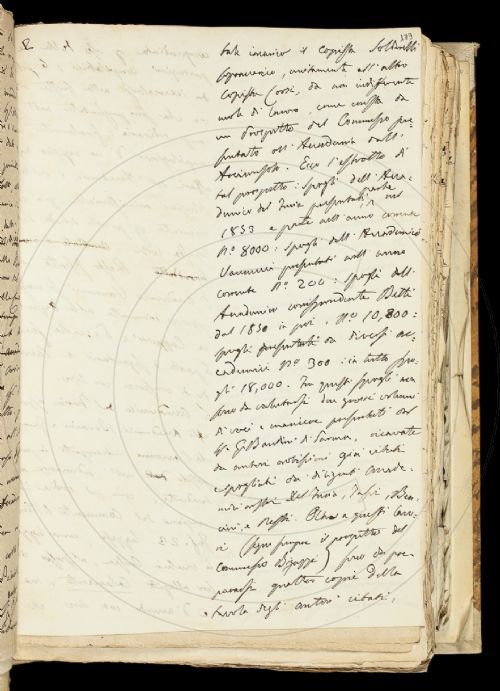 189
tale incarico il copista Soldinelli
unitamente all'altro
copista Corsi, da non indifferente
mole di lavoro, come consta da
un Prospetto del Commesso pre-
sentato all'Accademia dall'
Arciconsolo. Ecco l'estratto di
tal prospetto: spogli dell'Acca-
demico del Furia presentati parte nel
1833 e parte nell'anno corrente
N.º 8000: spogli dell'Accademico
Vanucci presentati nell'anno
corrente N.º 200: spogli dell'
Accademico corrispondente Betti
dal 1830 in poi, N.º 10,800:
spogli presentati da diversi ac-
cademici N.º 300: in tutto spo-
gli 18,000. Fra questi spogli non
sono da valutarsi due grossi volumi
di voci e maniere presentati dal
G. Bandini di Parma, ricavate
da autori antichissimi già citati
e spogliati da diligenti Accade-
mici nostri Del Furia, Fossi, Ben-
cini, e Nesti. Oltre a questi lavo-
ri (segue sempre il prospetto del
Commesso Bigazzi) sono da pre-
pararsi quattro copie della
tavola degli autori citati,